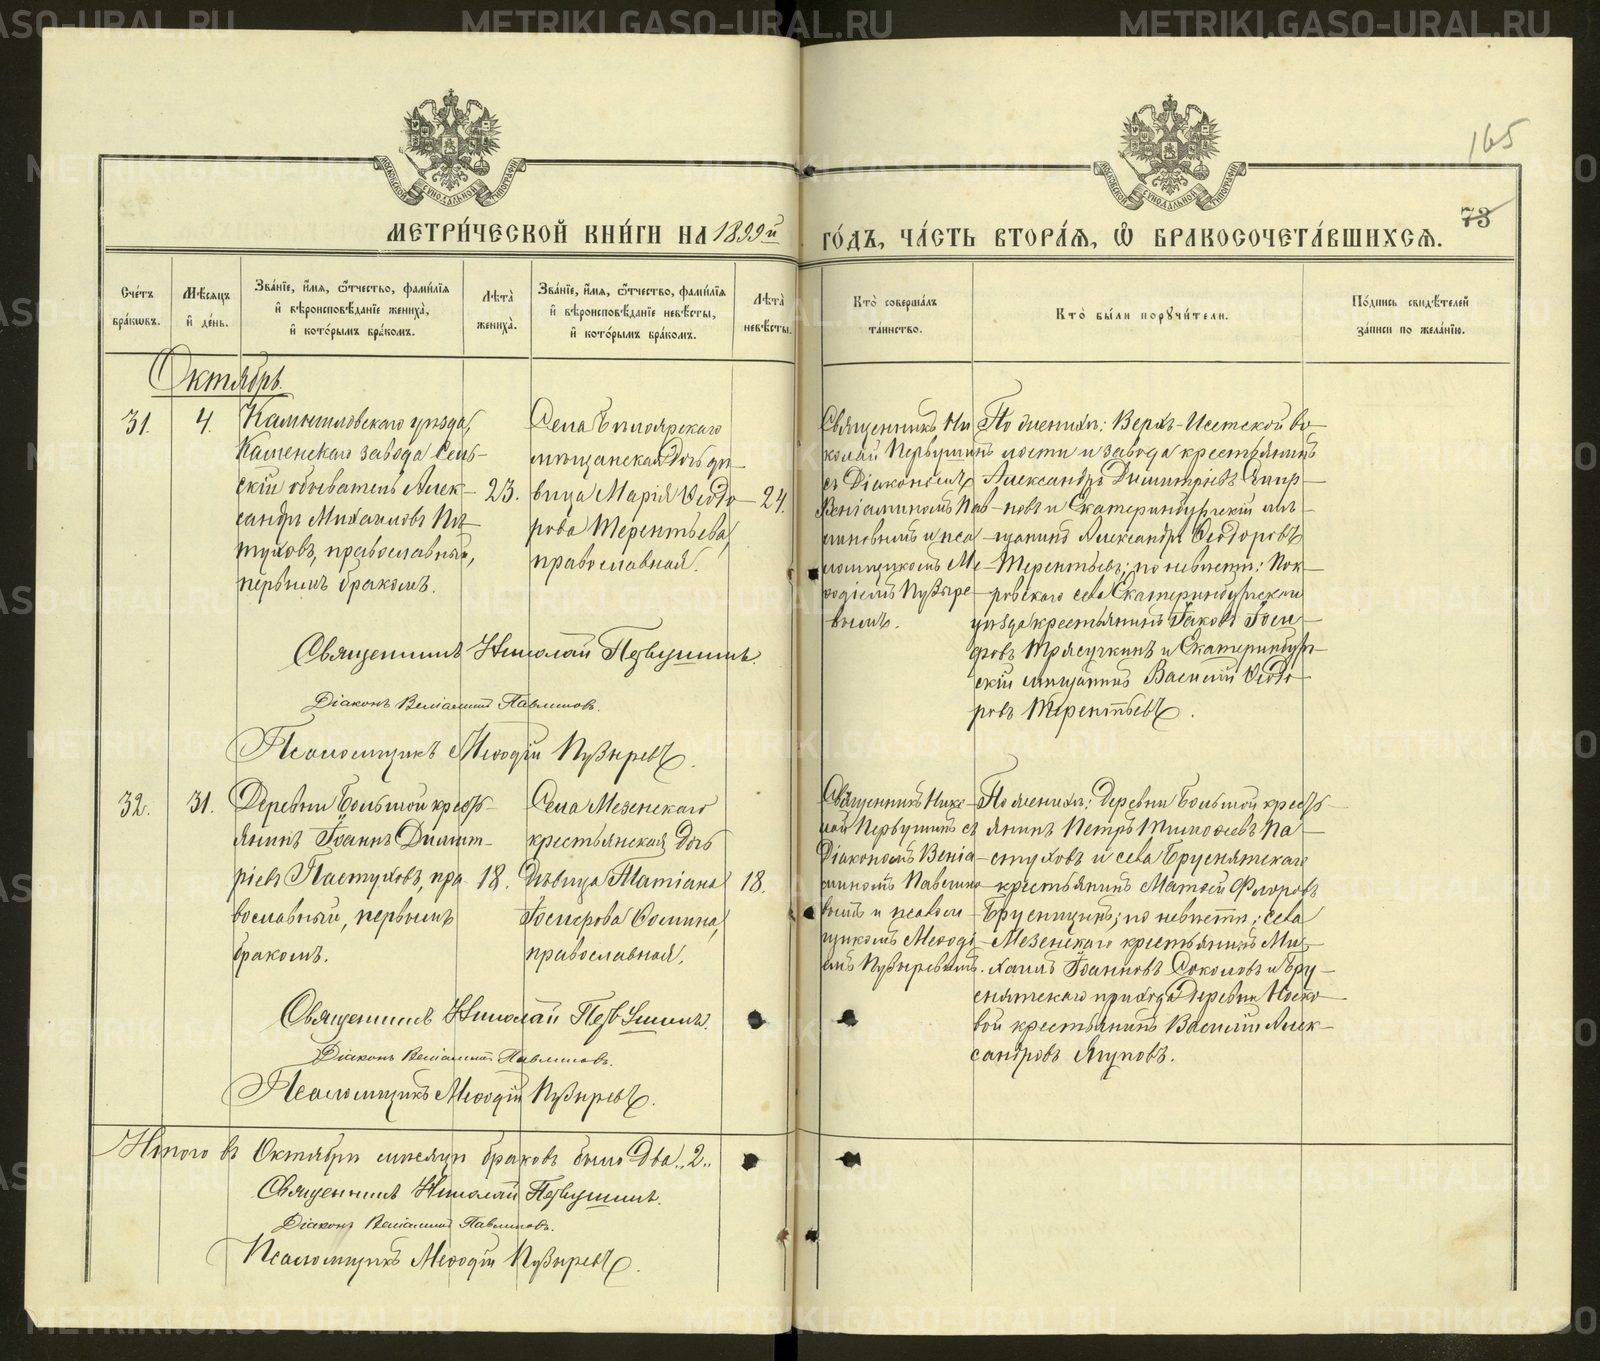 METRIKI.GASO-URAL.RU
165
73
МОСКОВСКОЙ СУНОДАЛЬНОЙ ТИПОГРАФІИ
МЕТРИ́ЧЕСКОЙ КНИ́ГИ НА 1899й ГО́ДЪ, ЧА́СТЬ ВТОРА́Я, Ѡ҆ БРАКОСОЧЕТА́ВШИХСЯ.
Сче́тъ бра́кѡвъ.
Мѣ́сяцъ и҆ де́нь.
Зва́нїе, и҆́мя, ѻ҆́тчество, фами́лїя и҆ вѣроисповѣ́данїе жениха̀, и҆ кото́рымъ бра́комъ.
Лѣта̀ жениха̀.
Зва́нїе, и҆́мя, ѻ҆́тчество, фами́лїя и҆ вѣроисповѣ́данїе невѣ́сты, и҆ кото́рымъ бра́комъ.
Лѣта̀ невѣ́сты.
Кто̀ соверша́лъ та́инство.
Кто̀ бы́ли пορꙋчи́тели.
По́дпись свидѣ́телей за́писи по жела́нїю.
Октябрь.
31.
4.
Камышловскаго уѣзда,
Каменскаго завода Сель-
скій обыватель Алек-
сандръ Михаиловъ Пѣ-
туховъ, православный,
первымъ бракомъ.
23.
Села Бѣлоярскаго
мѣщанская дочь дѣ-
вица Марія Ѳеодо-
рова Терентьева,
православная.
24.
Священникъ Ни-
колай Первушинъ
съ Діакономъ
Веніаминомъ Пав-
линовымъ и пса-
ломщикомъ Ме-
ѳодіемъ Пузыре-
вымъ.
По женихѣ: Верхъ-Исетской во-
лости и завода крестьянинъ
Александръ Димитріевъ
новъ и Екатеринбургскій мѣ-
щанинъ Александръ Ѳеодоровъ
Терентьевъ; по невѣстѣ: Пок-
ровскаго села Екатеринбургскаго
уѣзда крестьянинъ Іаковъ Іоси-
фовъ Трясучкинъ и Екатеринбург-
скій мѣщанинъ Василій Ѳеодо-
ровъ Терентьевъ.
Священникъ Николай Первушинъ.
Діаконъ Веніаминъ Павлиновъ.
Псаломщикъ Меѳодій Пузыревъ.
32.
31.
Деревни Большой кресть-
янинъ Іоаннъ Димит-
ріевъ Пастуховъ, пра-
вославный, первымъ
бракомъ.
18.
Села Мезенскаго
крестьянская дочь
дѣвица Татіана
Ѳомина,
православная.
18.
Священникъ Нико-
лай Первушинъ съ
Діакономъ Веніа-
миномъ Павлино-
вымъ и псалом-
щикомъ Меѳоді-
емъ Пузыревымъ.
По женихѣ: Деревни Большой кресть-
янинъ Петръ Тимоѳеевъ Па-
стуховъ и села Бруснятскаго
крестьянинъ Матѳей Флоровъ
Брусницинъ; по невѣстѣ: села
Мезенскаго крестьянинъ Ми-
хаилъ Іоанновъ Соколовъ и Бру-
снятскаго прихода Деревни Носко-
вой крестьянинъ Василій Алек-
сандровъ Ягуповъ.
Священникъ Николай Первушинъ.
Діаконъ Веніаминъ Павлиновъ.
Псаломщикъ Меѳодій Пузыревъ.
Итого въ Октябрѣ мѣсяцѣ браковъ было два „2„
Священникъ Николай Первушинъ.
Діаконъ Веніаминъ Павлиновъ.
Псаломщикъ Меѳодій Пузыревъ.